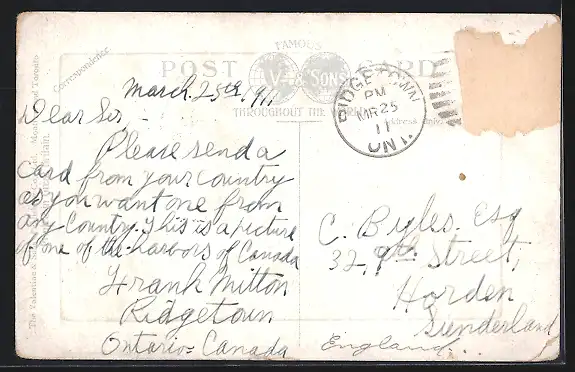 FAMOUS
POST CARD
V & SONS
THROUGHOUT THE
Correspondence
RIDGETOWN
PM
MR 25
11
ONT.
March. 25th. 1911
Dear Sir -
Please send a
Card from your Country
as you want one from
any Country. This is a picture
of one of the harbors of Canada
Frank Mitton
Ridgetown
Ontario = Canada
C. Byles. Esq
32, 9th Street,
Horden
Sunderland
England
The Valentine & Sons